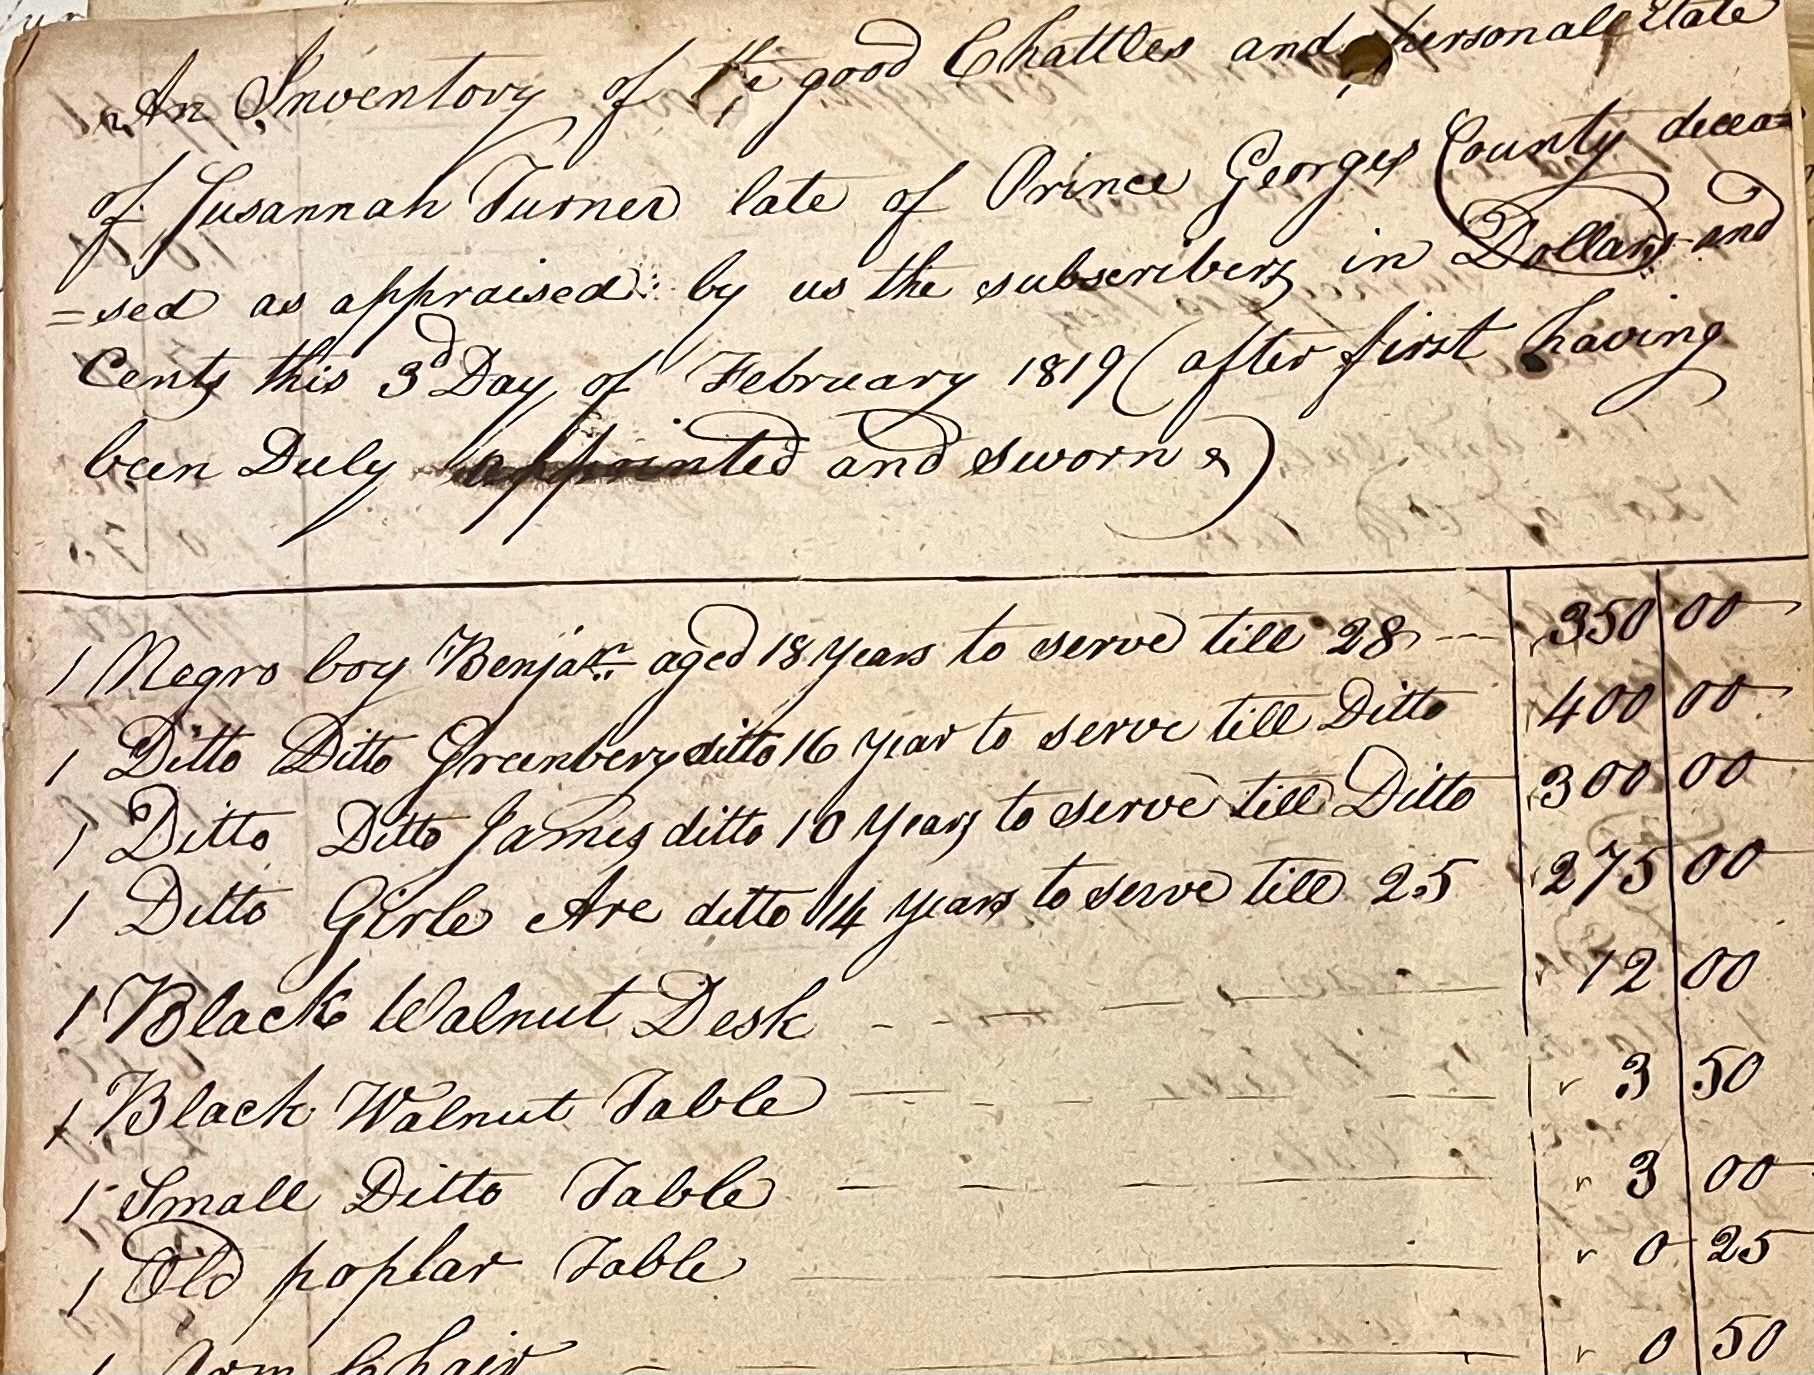 An Inventory of the good Chattles and personall Etate
of Susannah Turner late of Prince Georges County decea=
=sed as appraised by us the subscribers in Dollars and
Cents this 3d Day of February 1819 (after first having
been Duly appointed and sworn)
1 Negro boy Benjan aged 18 years to serve till 28 350 00
1 Ditto Ditto Greenbery ditto 16 year to serve till Ditto 400 00
1 Ditto Ditto James ditto 10 years to serve till Ditto 300 00
1 Ditto Girle Are ditto 14 years to serve till 25 275 00
1 Black Walnut Desk 12 00
1 Black Walnut Table 3 50
1 Small Ditto Table 3 00
1 Old poplar Table 0 25
1 Arm Chair 0 50